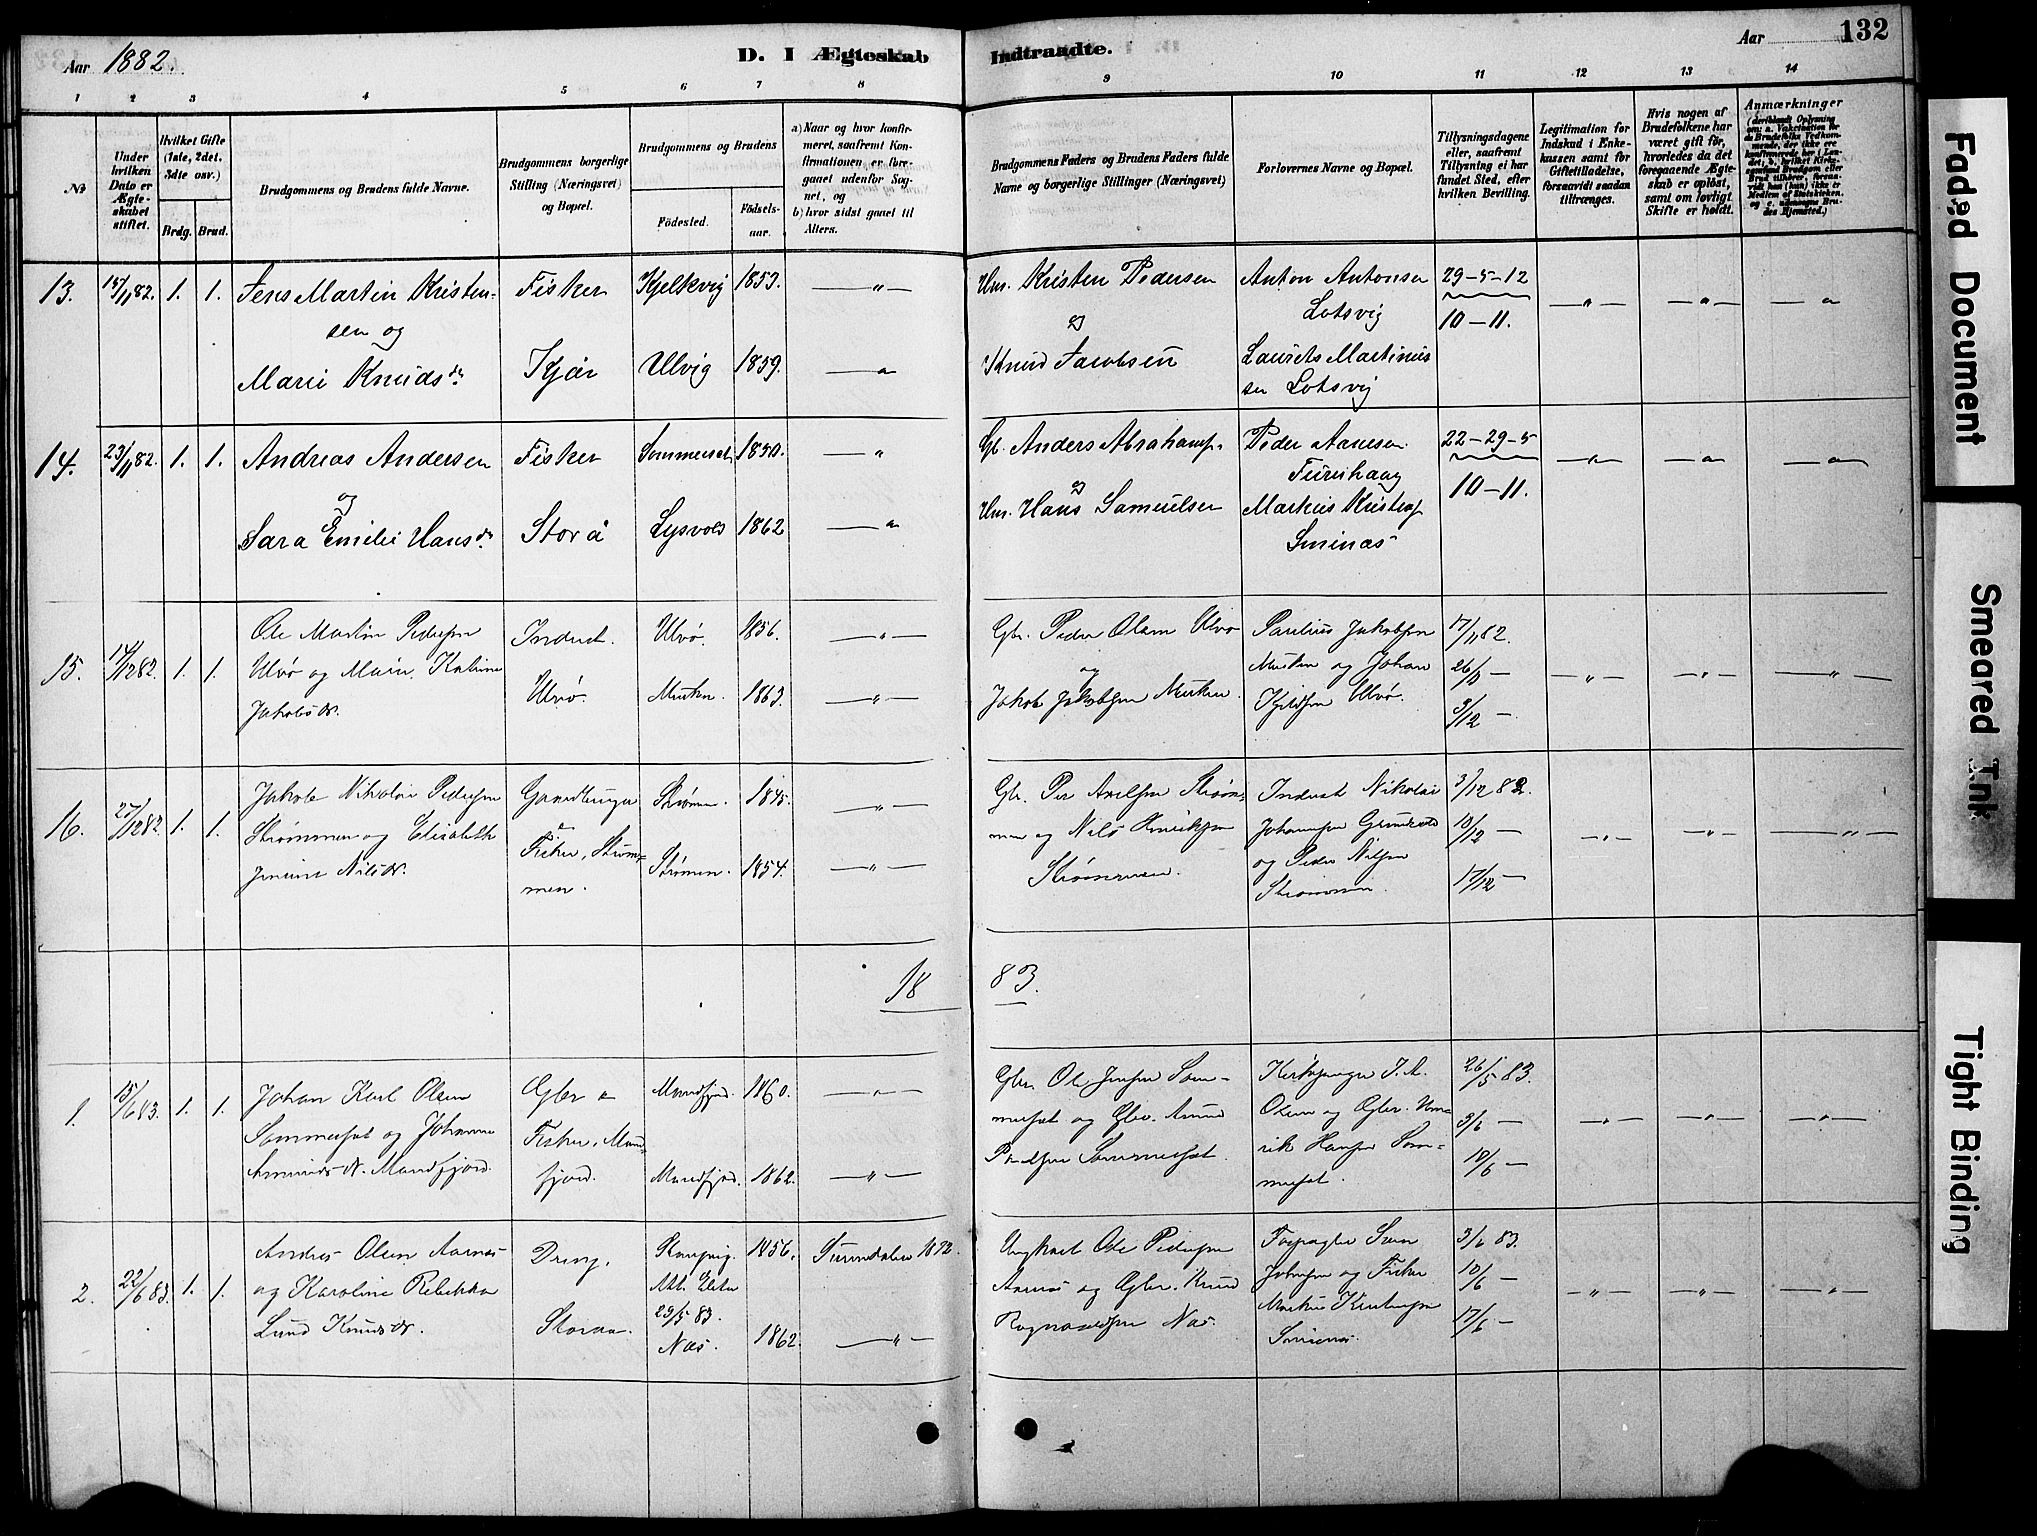 Aar 1882.
D. I Ægteskab
Indtraadte.
Aar
132
1 2 3 4 5 6 7 8
9 10 11 12 13 14
№
Under hvilken Dato er Ægteskabet stiftet.
Hvilket Gifte (1ste, 2det, 3dte osv.)
Brdg. Brud.
Brudgommens og Brudens fulde Navne.
Brudgommens borgerlige Stilling (Næringsvei) og Bopæl.
Brudgommens og Brudens
Födested.
Födselsaar.
a) Naar og hvor konfirmeret, saafremt Konfirmationen er foregaaet udenfor Sognet, og
b) hvor sidst gaaet til Alters.
Brudgommens Faders og Brudens Faders fulde Navne og borgerlige Stillinger (Næringsvei)
Forlovernes Navne og Bopæl.
Tillysningsdagene eller, saafremt Tillysning ei har fundet Sted, efter hvilken Bevilling.
Legitimation for Indskud i Enkekassen samt for Giftetilladelse, forsaavidt saadan tiltrænges.
Hvis nogen af Brudefolkene har været gift før, hvorledes da det foregaaende Ægteskab er opløst, samt om lovligt Skifte er holdt.
Anmærkninger
13. 15/11 82. 1. 1. Jens Martin Kristen-
sen og
Marie Knudsdr
Fisker
Kjær
Kjelkvig 1853. — " —
Ulvig 1859. — " —
Hm. Kristen Pedersen
og
Knud Jacobsen
Anton Antonsen
Lotsvig
Laurits Martinius
sen Lotsvig
29-5-12
10-11.
14. 23/11 82. 1. 1. Andreas Andersen
og
Sara Emilie Hansdr
Fisker
Storå
Sommerset 1850. — " —
Lysvold 1862 — " —
Gb. Anders Abrahams.
og
Hm. Hans Samuelsen
Peder Aanesen
Furuhaug
Markus Kristens
Sminæs
22-29-5
10-11.
15. 14/12 82. 1. 1. Ole Martin Pedersen
Ulvø og Maren Katrine
Jakobsdr.
Inderst.
Ulvø.
Ulvø. 1856. — " —
Musken. 1863. — " —
Gbr. Peder Olsen Ulvø
og
Jakob Jakobsen Musken.
Paulius Jakobsen
Musken og Johan
Kjeldsen Ulvø.
17/11 82.
26/11 —
3/12 —
16. 27/12 82. 1. 1. Jakob Nikolai Pedersen
Strømmen og Elisabeth
Jensine Nilsdr.
Gaardbruger
&
Fisker, Strøm=
men.
Strømen. 1845. — " —
Strømen. 1854. — " —
Gbr. Per Axelsen Strøm-
men og Nils Henriksen
Strømmen.
Inderst Nikolai
Johansen
og Peder Nilsen
Strømmen.
3/12 82.
10/12 —
17/12 —
18 83.
1. 15/6 83. 1. 1. Johan Karl Olsen
Sommerset og Johanna
Amundsdr. Mandfjord.
Gbr &
Fisker, Mand
fjord.
Mandfjord. 1860. — " —
Mandfjord. 1862. — " —
Gbr. Ole Jensen Som-
merset og Gbr. Amund
Paulsen Sommerset.
Kirkesanger J. A.
Olsen og Gbr. Hen-
rik Hansen Som-
merset.
26/5 83.
3/6 —
10/6 —
2. 22/6 83. 1. 1. Andreas Olsen Aarnes
og Karoline Rebekka
Lund Knudsdr.
Dreng,
Storaa.
Att.
29/5 83.
Næs.
1856. Surendalen 1872.
1862. — " —
Ungkarl Ole Pedersen
Aarnes og Gbr. Knud
Rognaldsen Næs.
Forpagter Sven
Johnsen og Fisker
Markus Kristensen
Sminæs.
3/6 83.
10/6 —
17/6 —
Faded Document
Smeared Ink
Tight Binding